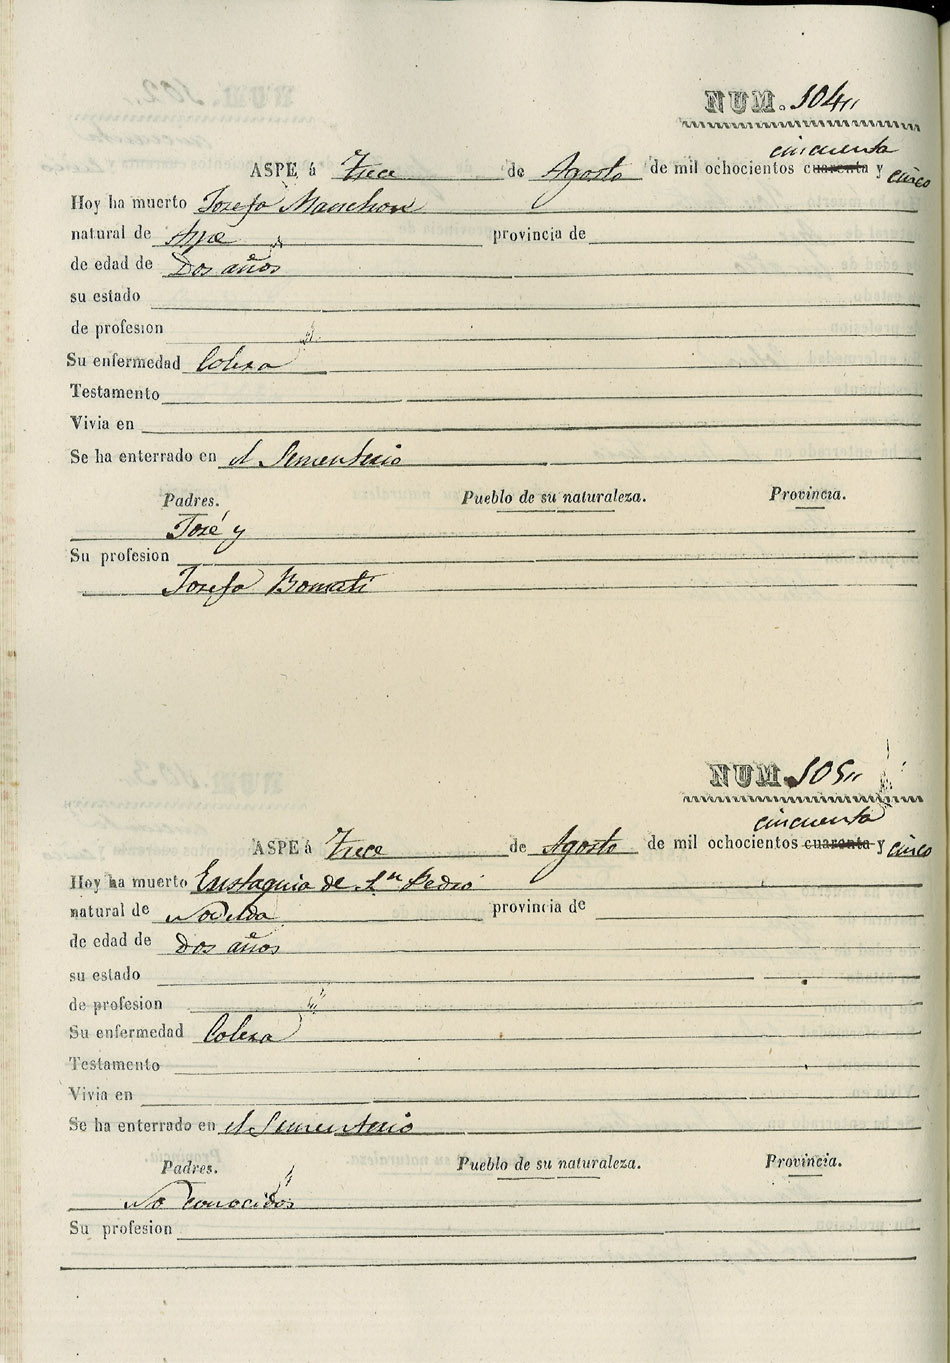 NUM. 104,,
cincuenta
ASPE, á Trece de Agosto de mil ochocientos cuarenta y cinco
Hoy ha muerto Josefa Manchon
natural de Aspe provincia de
de edad de Dos años
su estado
de profesion
Su enfermedad Colera
Testamento
Vivia en
Se ha enterrado en el Sementerio
Padres. Pueblo de su naturaleza. Provincia.
José y
Su profesion
Josefa Bomati
NUM. 105,,
cincuenta
ASPE á Trece de Agosto de mil ochocientos cuarenta y cinco
Hoy ha muerto Eustaquia de Sn Pedro
natural de Novelda provincia de
de edad de Dos años
su estado
de profesion
Su enfermedad Colera
Testamento
Vivia en
Se ha enterrado en el Sementerio
Padres. Pueblo de su naturaleza. Provincia.
No conocidos
Su profesion